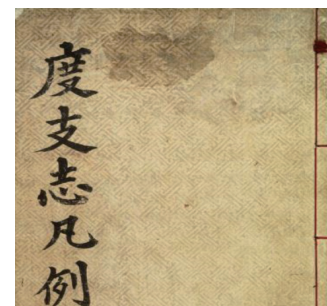 度支志凡例